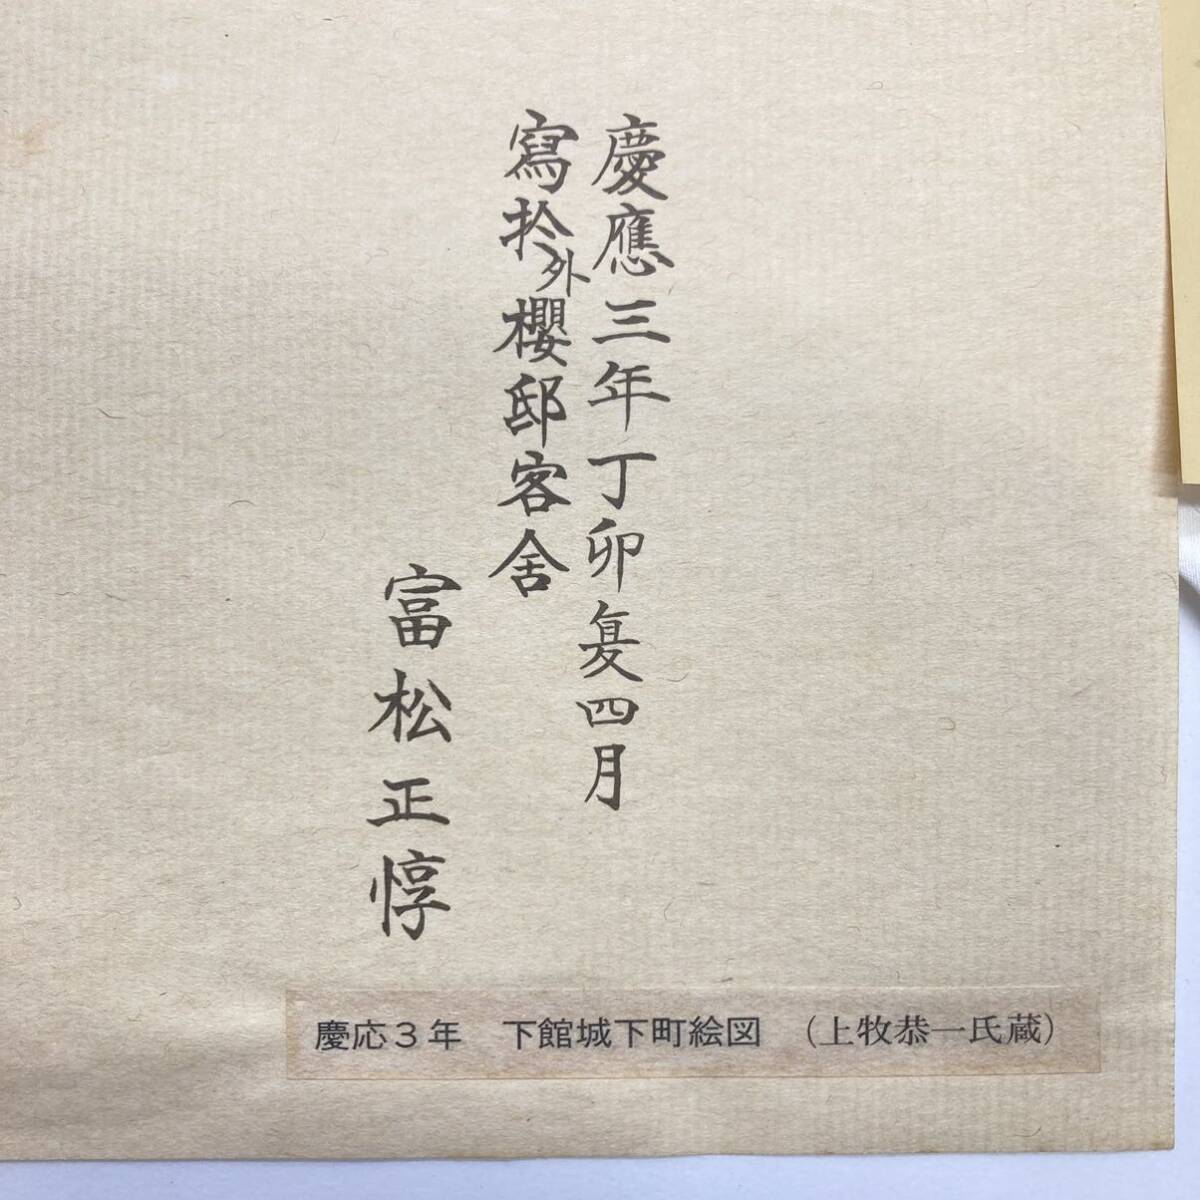 慶應三年丁卯夏四月
寫於外櫻邸客舎
富松正惇
慶応3年 下館城下町絵図 (上牧恭一氏蔵)